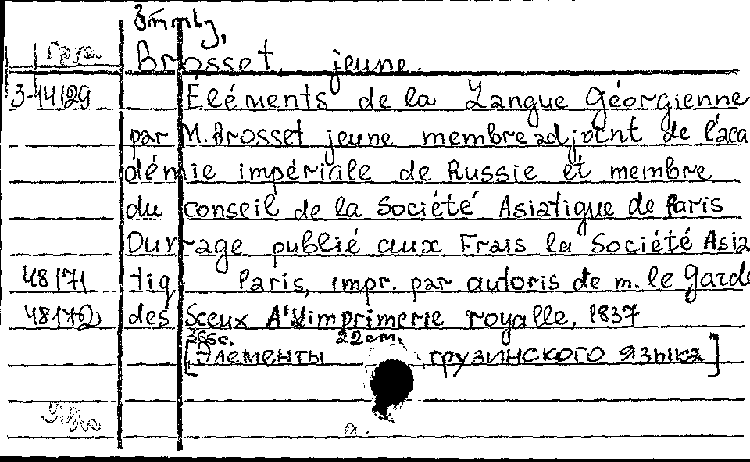 Brosset jeune.
3-14129 Éléments de la Langue Géorgienne
par M. Brosset jeune membre adjoint de l'aca
démie impériale de Russie et membre
du conseil de la Société Asiatique de Paris
Ouvrage publié aux Frais la Société Asia
48171 tiq Paris, impr. par autoris de m. le Garde
48172 des Sceux A'l'imprimerie royalle, 1837
22cm.
[Элементы грузинского языка]